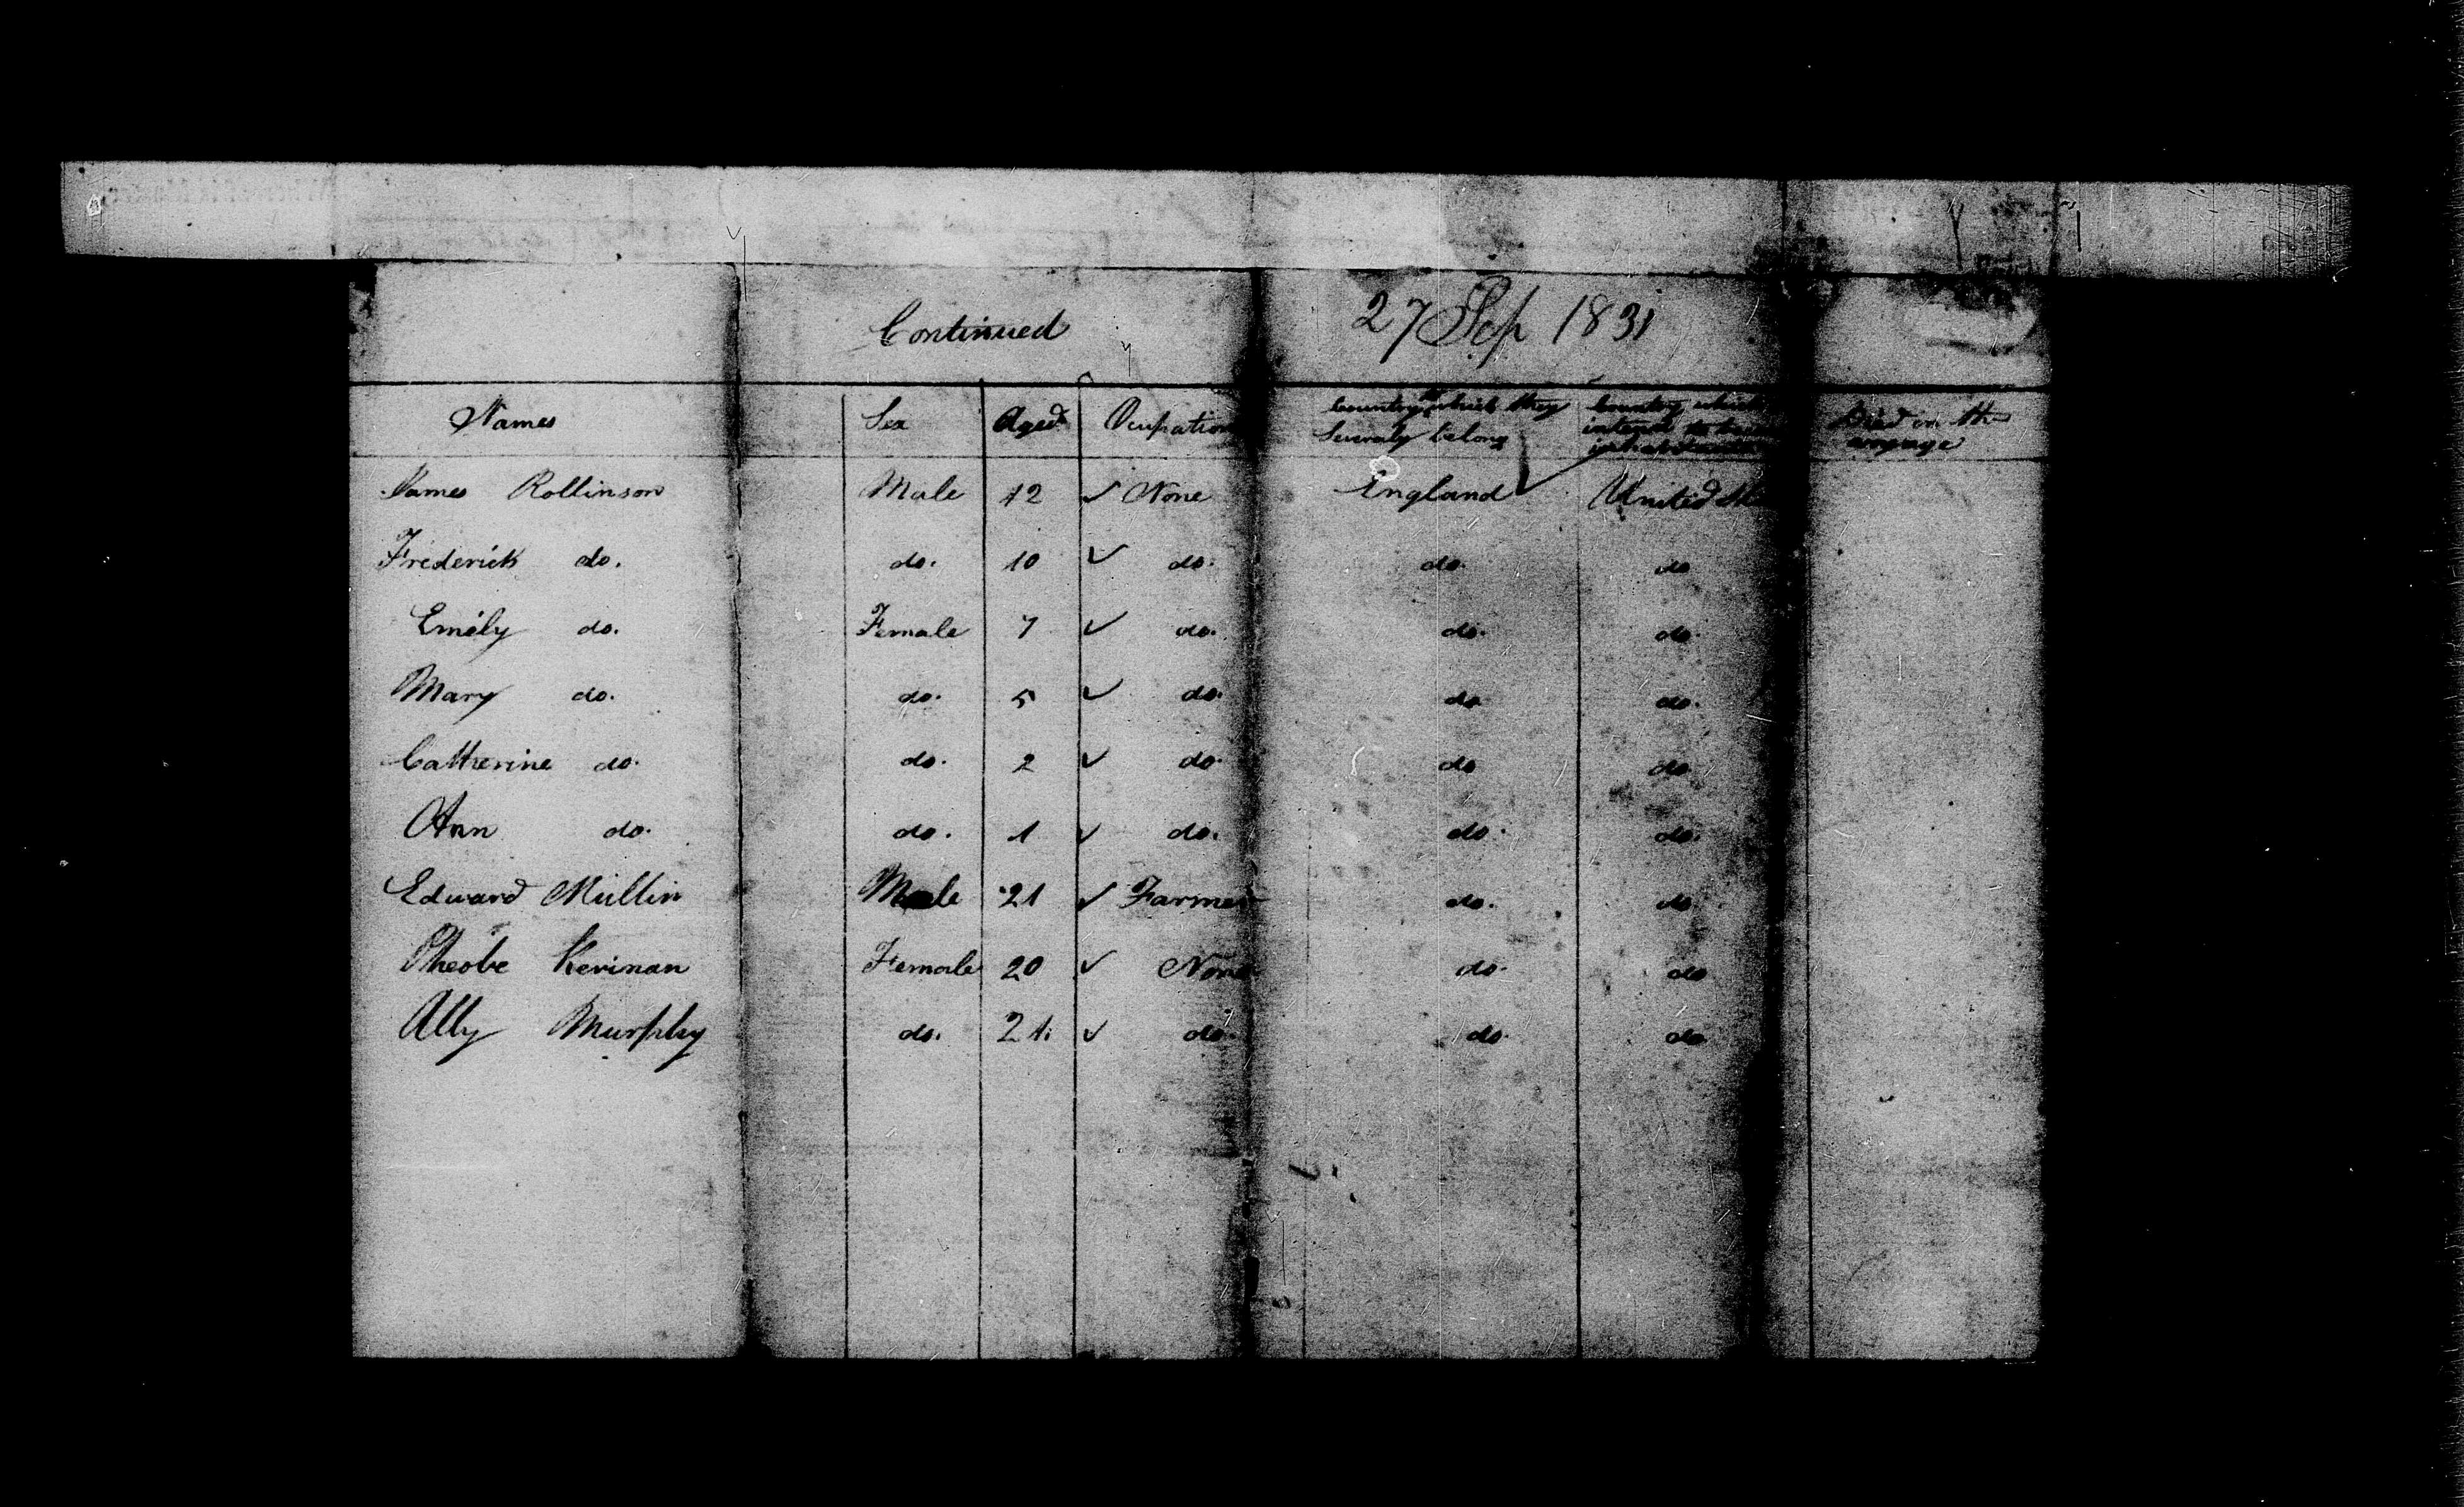 Continued 27 Sep 1831
Names Sex Aged Ocupation Country to which they severaly belong Country which intend to inhabitants Died on the voyage
James Rollinson Male 12 ✓ None England ✓ United
Frederick do. do. 10 ✓ do. do. do
Emily do. Female 7 ✓ do. do. do.
Mary do. do. 5 ✓ do. do do.
Catherine do. do. 2 ✓ do. do do.
Ann do. do. 1 ✓ do. do. do.
Edward Mullin Male 21 ✓ Farmer do. do.
Pheobe Kerinan Female 20 ✓ None do. do
Ally Murphy do. 21. ✓ do. do. do